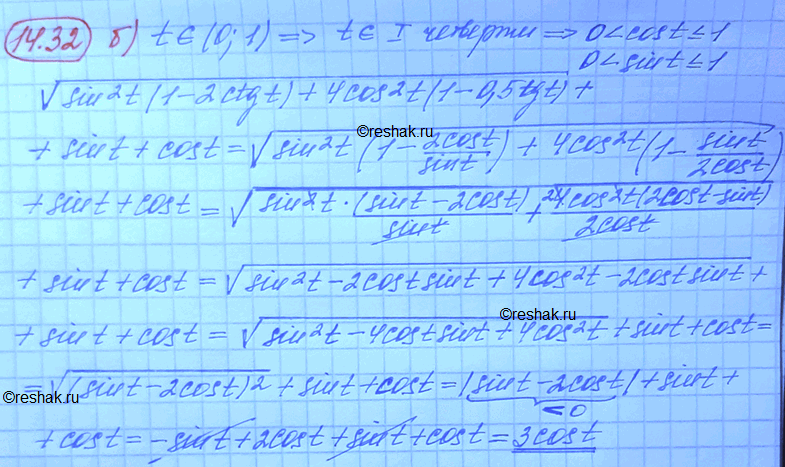 14.32 б) t ∈ (0; 1) => t ∈ I четверти => 0 < cos t ≤ 1
0 < sin t ≤ 1
√(sin²t (1 - 2ctg t) + 4cos²t (1 - 0,5tg t)) +
+ sin t + cos t = √(sin²t (1 - 2cos t/sin t) + 4cos²t (1 - sin t/2cos t))
reshak.ru
+ sin t + cos t = √(sin²t · (sin t - 2cos t)/sin t + 4cos²t (2cos t - sin t)/2cos t)
+ sin t + cos t = √(sin²t - 2cos t sin t + 4cos²t - 2cos t sin t) +
reshak.ru
+ sin t + cos t = √(sin²t - 4cos t sin t + 4cos²t) + sin t + cos t =
= √((sin t - 2cos t)²) + sin t + cos t = |sin t - 2cos t| + sin t +
reshak.ru
< 0
+ cos t = - sin t + 2cos t + sin t + cos t = 3cos t